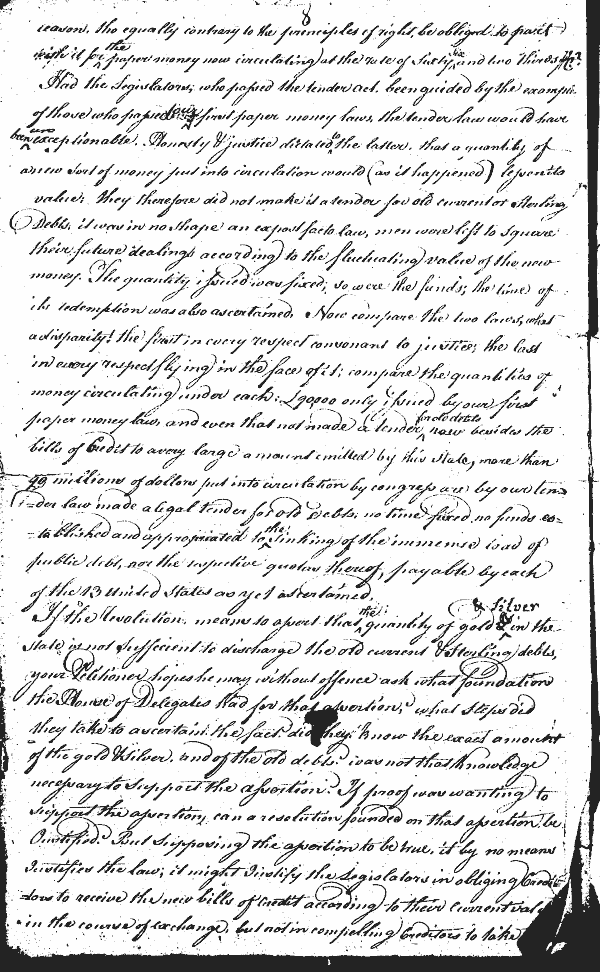 8
reason, tho equally contrary to the principles of right, be obliged to part
with it for the paper money now circulating at the rate of sixty six and two thirds
Had the Legislators, who passed the tender act. been guided by the example
of those who passed first paper money laws, the tender law would have
been unexceptionable. Honesty & justice dictated to the latter. that a quantity of
a new sort of money put into circulation would (as it happened) lessen its
value; they therefore did not make it a tender for old current or Sterling
Debts, it was in no shape an expost facto law, men were left to square
their future dealings according to the fluctuating value of the new
money. The quantity issued was fixed; so were the funds; the time of
its redemption was also ascertained. Now compare the two laws, what
a disparity! the first in every respect consonant to justice; the last
in every respect flying in the face of it; compare the quantities of
money circulating under each; only issued by our first
paper money law, and even that not made a tender for old debts, now besides the
bills of Credit to a very large amount emitted by this State, more than
99 millions of dollars put into circulation by congress are by our ten=
=der law made a legal tender for old Debts; no time fixed no funds es=
=tablished and appropriated to the sinking of the immense load of
public debt, nor the respective quotas thereof, payable by each
of the 13 United States as yet ascertained.
If the Resolution. means to assert that the quantity of gold & Silver in the
state is not sufficient to discharge the old current & Sterling debts,
your Petitioner hopes he may without offence ask what foundation
the House of Delegates had for that assertion? what steps did
they take to ascertain the fact? did they know the exact amount
of the gold & silver, and of the old debts? was not that knowledge
necessary to support the assertion? If proof was wanting to
support the assertion, can a resolution founded on that assertion, be
Justified? But supposing the assertion to be true, it by no means
Justifies the law; it might Justify the Legislators in obliging Credi=
=tors to receive the new bills of credit according to their current value
in the course of exchange, but not in compelling Creditors to take